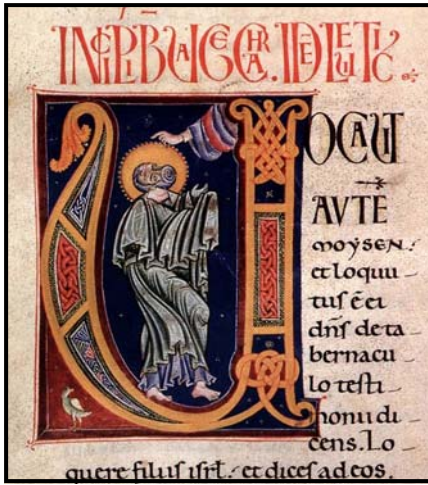 INCIPIT LIB UAGECHRA. ID Ē LEUITIC
UOCAUIT
AVTE
moysen:
et loquu
tus ē ei
dñs de ta
bernacu
lo testi
monii di
cens. Lo
quere filiis isrł. et dices ad eos.